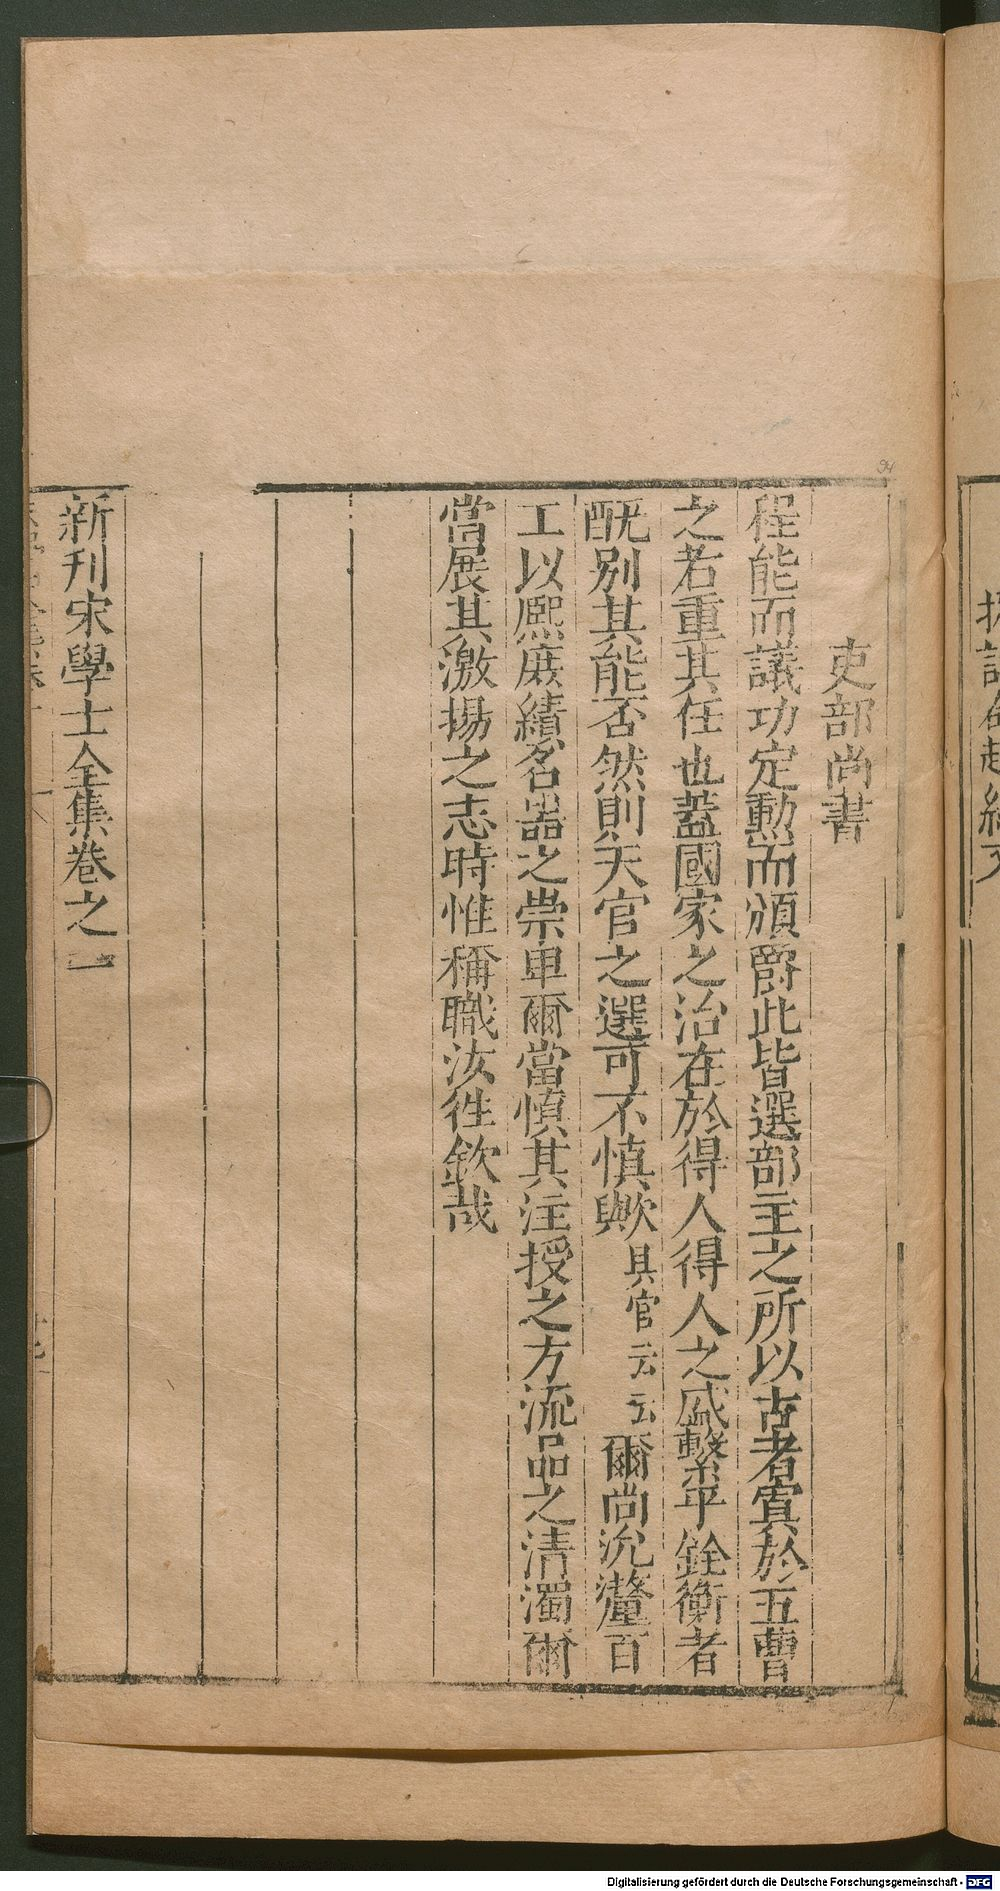 吏部尚書
程能而議功定勲而頒爵此皆選部主之所以古者寘於五曹
之若重其任也蓋國家之治在於得人得人之盛繫乎銓衡者
酰别其能否然則天官之選可不慎歟具官云云爾尚允釐百
工以熈庶績名器之崇卑爾當慎其注授之方流品之清濁爾
當展其激揚之志時惟稱職汝徃欽哉
新刊宋學士全集卷之一
Digitalisierung gefördert durch die Deutsche Forschungsgemeinschaft - DFG